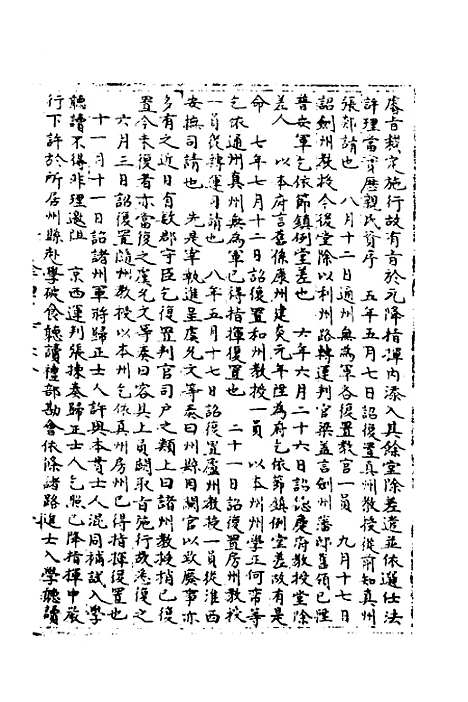 處旨裁定施行故有旨於元降指揮內添入其餘堂除差遣並依選任法
許理當實歷親民資序　五年五月七日詔復置真州教授從前知真州
張郯請也　八月十二日通州無為軍各復置教官一員　九月十七日
詔劍州教授今後堂除以利州路轉運判官梁蓋言劍州潘邸舊領已陞
普安軍乞依節鎮例堂差也　六年六月二十六日詔德慶府教授堂除
差人　以本府言舊係康州建炎元年陞為府乞依節鎮例堂差故有是
命　七年七月十二日詔復置和州教授一員　以本州州學正何蒂等
乞依通州真州無為軍已得指揮復置也　二十一日詔復置房州教授
一員從轉運司請也　八年五月十七日詔復置廬州教授一員從淮西
安撫司請也　先是宰執進呈虞允文等奏曰州縣因闕官以致廢事亦
多有之近日有數郡守臣乞復置判官司戶之類上曰諸州教授捎已復
置今未復者亦當復之虞允文等奏曰容具上員闕取旨施行故悉復之
六月三日詔復置隨州教授以本州乞依真州房州已得指揮復置也
十一月十一日詔諸州軍將歸正士人許與本貫士人混同補試入學
聽讀不得非理邀阻　京西運判張棟奏歸正士人乞照已降指揮申嚴
行下許於所居州縣赴學破食聽讀禮部勘會依條諸路進士入學聽讀